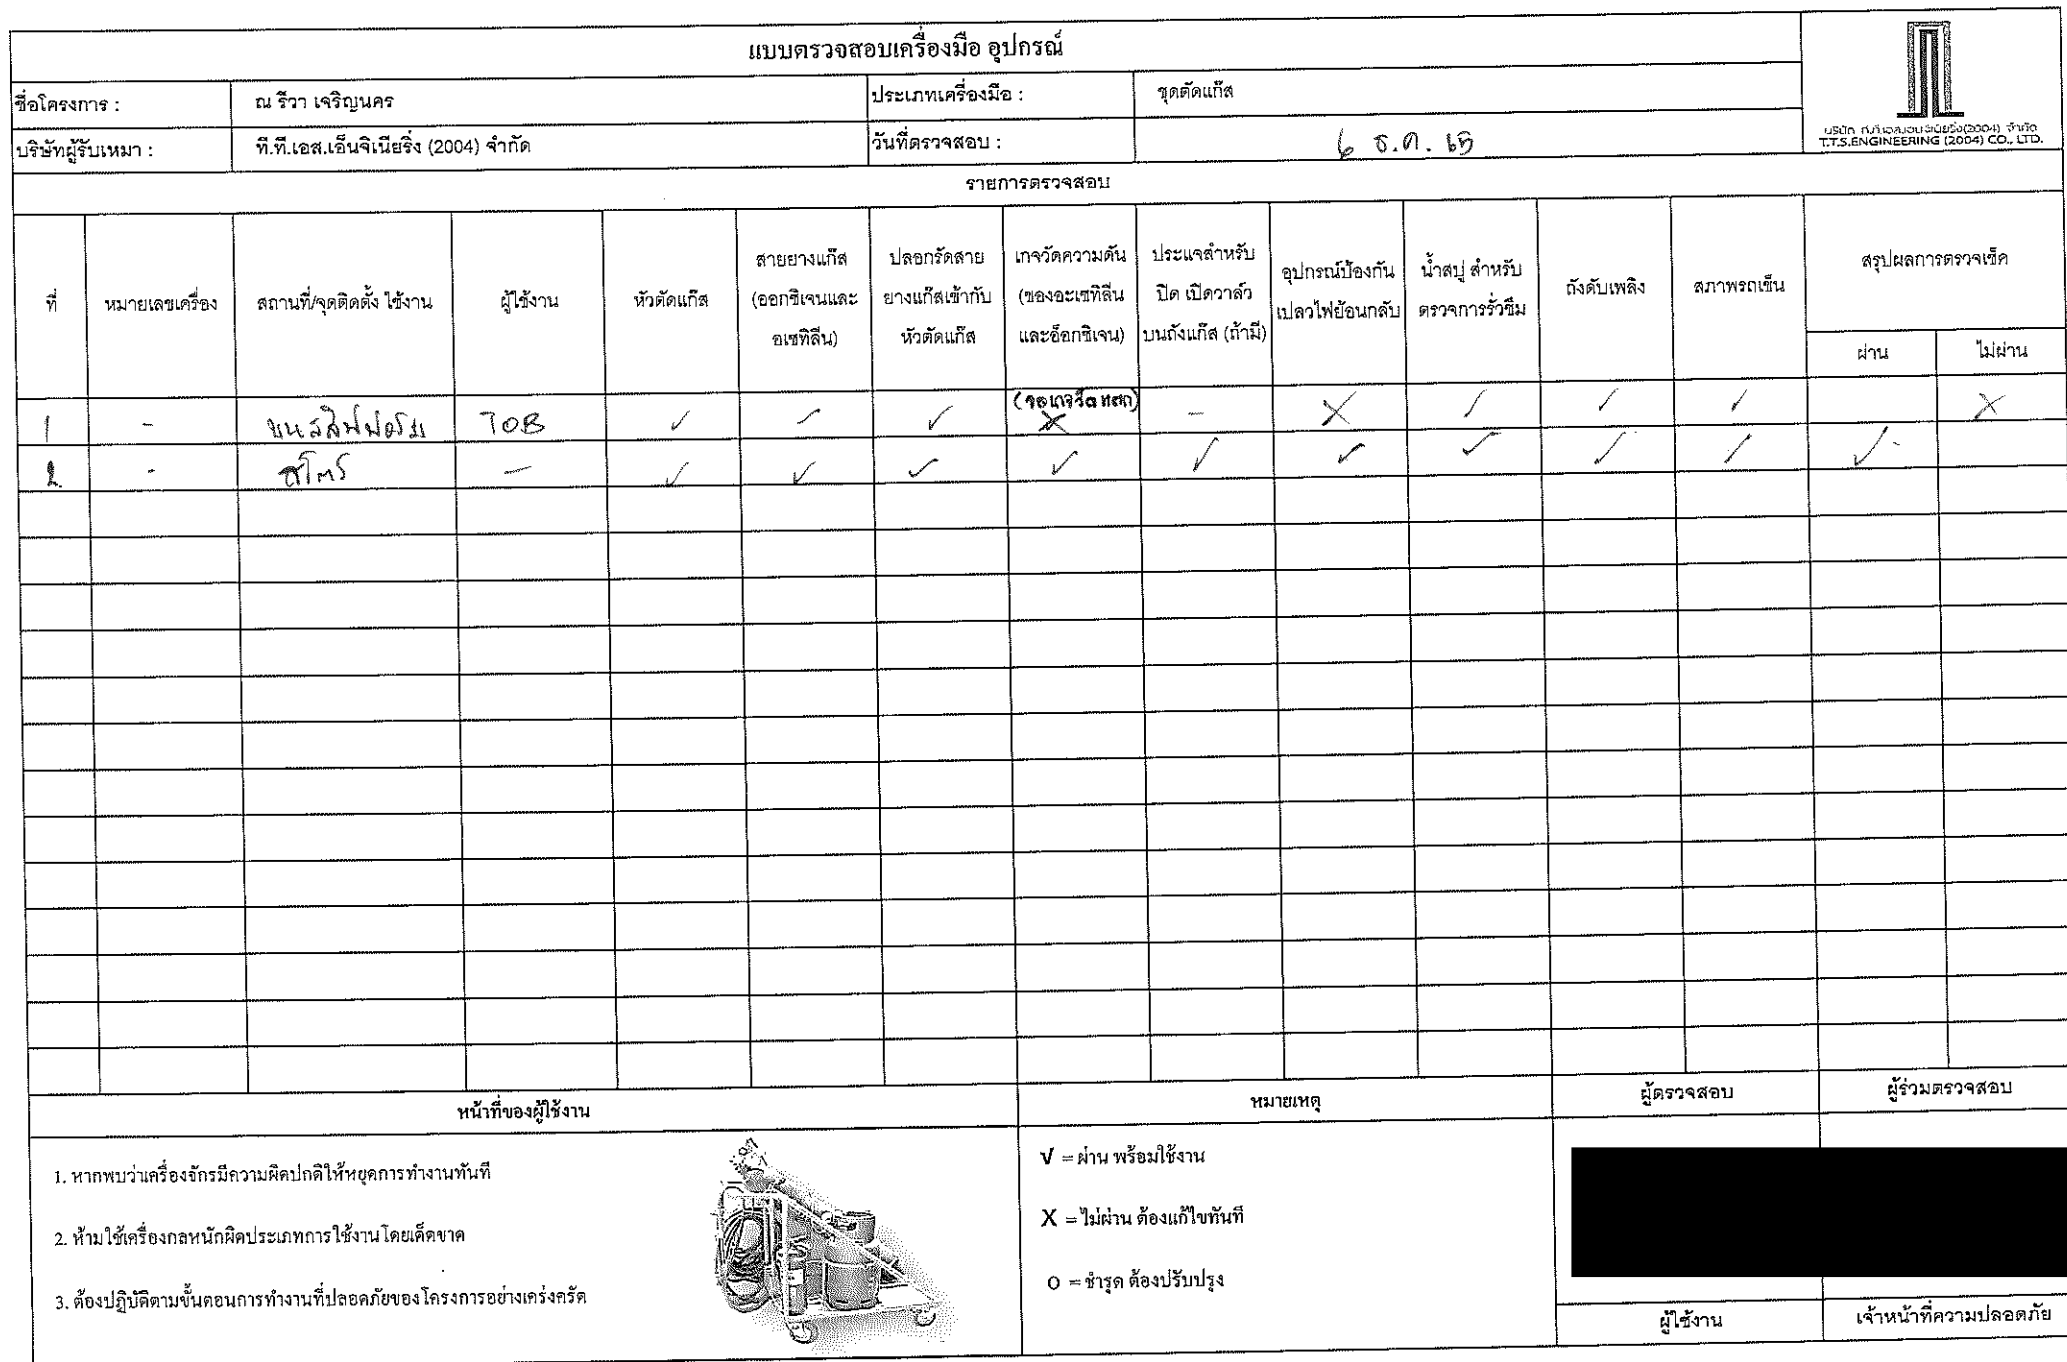 แบบตรวจสอบเครื่องมือ อุปกรณ์
ชื่อโครงการ : ณ รีวา เจริญนคร ประเภทเครื่องมือ : ชุดตัดแก๊ส
บริษัทผู้รับเหมา : ที.ที.เอส.เอ็นจิเนียริ่ง (2004) จำกัด วันที่ตรวจสอบ : 6 ธ.ค. 65
T.T.S.ENGINEERING (2004) CO., LTD.
รายการตรวจสอบ
ที่
หมายเลขเครื่อง
สถานที่/จุดติดตั้ง ใช้งาน
ผู้ใช้งาน
หัวตัดแก๊ส
สายยางแก๊ส
(ออกซิเจนและ
อเซทิลีน)
ปลอกรัดสาย
ยางแก๊สเข้ากับ
หัวตัดแก๊ส
เกจวัดความดัน
(ของอะเซทิลีน
และอ็อกซิเจน)
ประแจสำหรับ
ปิด เปิดวาล์ว
บนถังแก๊ส (ถ้ามี)
อุปกรณ์ป้องกัน
เปลวไฟย้อนกลับ
น้ำสบู่ สำหรับ
ตรวจการรั่วซึม
ถังดับเพลิง
สภาพรถเข็น
สรุปผลการตรวจเช็ค
ผ่าน ไม่ผ่าน
1 - TOB ✓ ✓ ✓ X - X ✓ ✓ ✓ X
2 - สโตร์ - ✓ ✓ ✓ ✓ ✓ ✓ ✓ ✓ ✓ ✓
หน้าที่ของผู้ใช้งาน
1. หากพบว่าเครื่องจักรมีความผิดปกติให้หยุดการทำงานทันที
2. ห้ามใช้เครื่องกลหนักผิดประเภทการใช้งานโดยเด็ดขาด
3. ต้องปฏิบัติตามขั้นตอนการทำงานที่ปลอดภัยของโครงการอย่างเคร่งครัด
หมายเหตุ
√ = ผ่าน พร้อมใช้งาน
X = ไม่ผ่าน ต้องแก้ไขทันที
O = ชำรุด ต้องปรับปรุง
ผู้ตรวจสอบ ผู้ร่วมตรวจสอบ
ผู้ใช้งาน เจ้าหน้าที่ความปลอดภัย